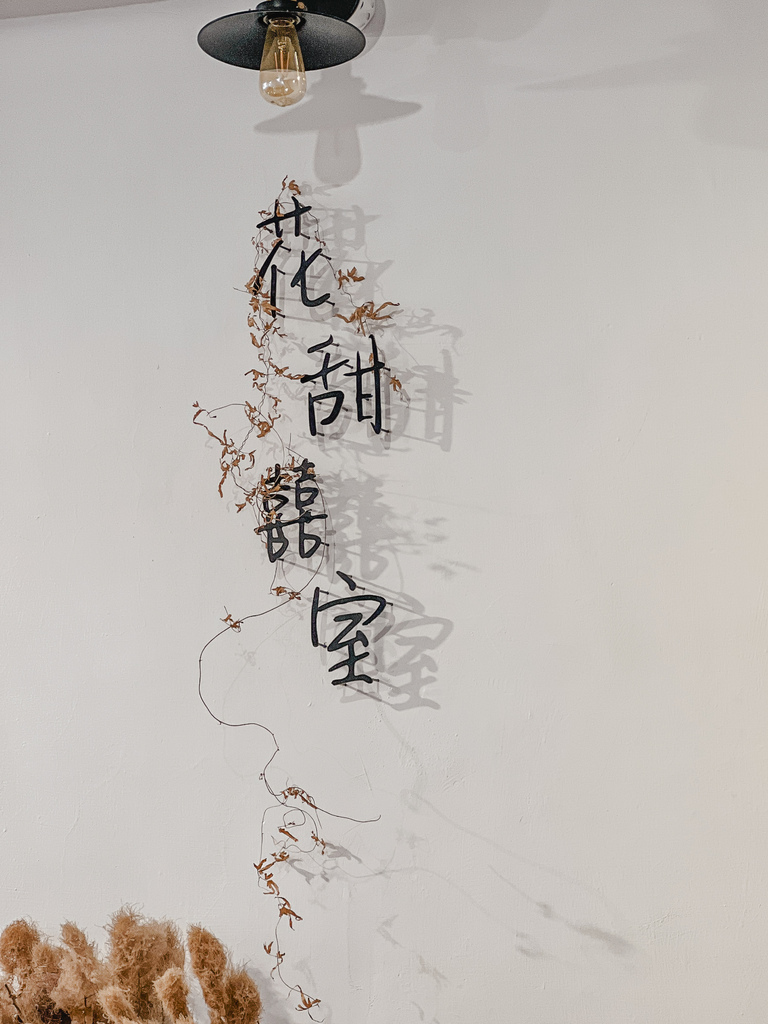 花甜囍室